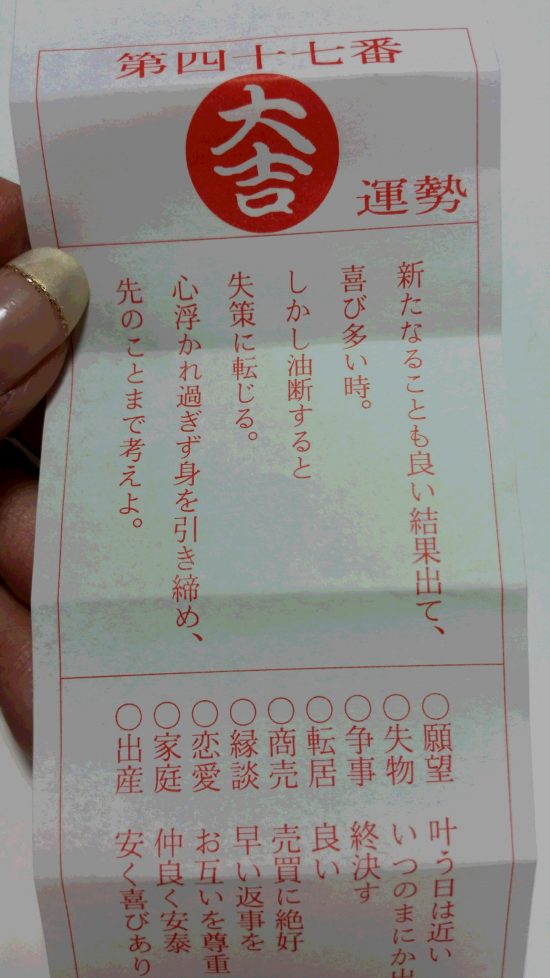 第四十七番
大吉
運勢
新たなることも良い結果出て、
喜び多い時。
しかし油断すると
失策に転じる。
心浮かれ過ぎず身を引き締め、
先のことまで考えよ。
○願望 叶う日は近い
○失物 いつのまにか出
○争事 終決す
○転居 良い
○商売 売買に絶好
○縁談 早い返事を
○恋愛 お互いを尊重
○家庭 仲良く安泰
○出産 安く喜びあり